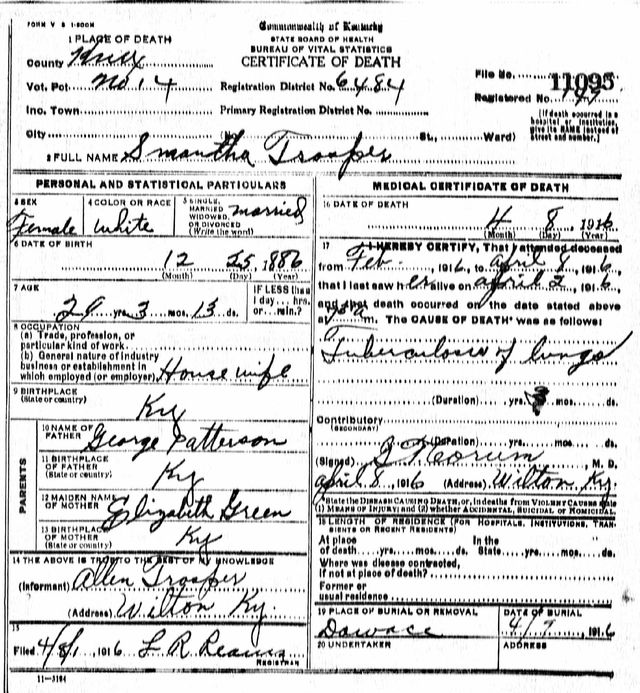 FORM V S 1-500M
Commonwealth of Kentucky
STATE BOARD OF HEALTH
BUREAU OF VITAL STATISTICS
CERTIFICATE OF DEATH
1 PLACE OF DEATH
County Knox
Vot. Pct. No 14
Inc. Town
City
Registration District No. 6484
Primary Registration District No.
(No. St., Ward)
File No. 11095
Registered No.
[If death occurred in a hospital or institution, give its NAME instead of street and number.]
2 FULL NAME Smantha Trosper
PERSONAL AND STATISTICAL PARTICULARS
3 SEX
Female
4 COLOR OR RACE
White
5 SINGLE, MARRIED WIDOWED, OR DIVORCED (Write the word)
married
6 DATE OF BIRTH
12 25, 1886
(Month) (Day) (Year)
7 AGE
29 yrs. 3 mos. 13 ds.
IF LESS than 1 day... hrs. or... min.?
8 OCCUPATION
(a) Trade, profession, or particular kind of work
(b) General nature of industry business or establishment in which employed (or employer) House wife
9 BIRTHPLACE
(State or country)
Ky
PARENTS
10 NAME OF FATHER
George Patterson
11 BIRTHPLACE OF FATHER
(State or country)
Ky
12 MAIDEN NAME OF MOTHER
Elizabeth Green
13 BIRTHPLACE OF MOTHER
(State or country)
Ky
14 THE ABOVE IS TRUE TO THE BEST OF MY KNOWLEDGE
(Informant) Allen Trosper
(Address) Wilton Ky.
15
Filed 4/8/, 1916 L R
REGISTRAR
11-3184
MEDICAL CERTIFICATE OF DEATH
16 DATE OF DEATH
4 8, 1916
(Month) (Day) (Year)
17 I HEREBY CERTIFY, That I attended deceased
from Feb., 1916, to April 8, 1916,
that I last saw her alive on April 2, 1916,
and that death occurred on the date stated above
at m. The CAUSE OF DEATH* was as follows:
Tuberculosis of lungs
(Duration) yrs. mos. ds.
Contributory
(SECONDARY)
(Duration) yrs. mos. ds.
(Signed) Corum, M. D.
April 8, 1916 (Address) Wilton, Ky.
*State the DISEASE CAUSING DEATH, or, in deaths from VIOLENT CAUSES state
(1) MEANS OF INJURY; and (2) whether ACCIDENTAL, SUICIDAL or HOMICIDAL.
18 LENGTH OF RESIDENCE (FOR HOSPITALS, INSTITUTIONS, TRANSIENTS OR RECENT RESIDENTS)
At place of death yrs. mos. ds. In the State yrs. mos. ds.
Where was disease contracted, if not at place of death?
Former or usual residence
19 PLACE OF BURIAL OR REMOVAL
DATE OF BURIAL
4/9, 1916
20 UNDERTAKER
ADDRESS